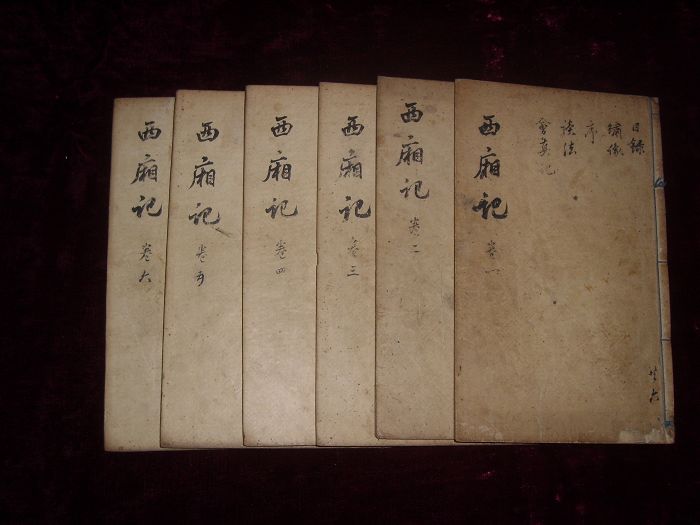 目錄
繡像
序
讀法
會真記
西廂記 卷一
共六
西廂記 卷二
西廂記 卷三
西廂記 卷四
西廂記 卷五
西廂記 卷六